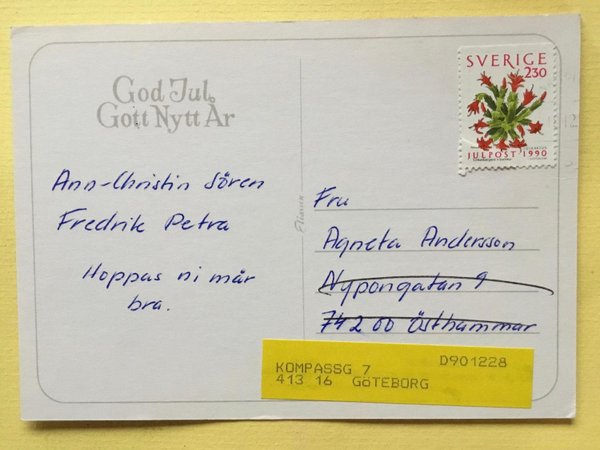 God Jul
Gott Nytt År
Ann-Christin Sören
Fredrik Petra
Hoppas ni mår
bra.
SVERIGE
230
JULPOST 1990
Fru
Agneta Andersson
Nypongatan 9
742 00 Östhammar
KOMPASSG 7 D901228
413 16 GÖTEBORG